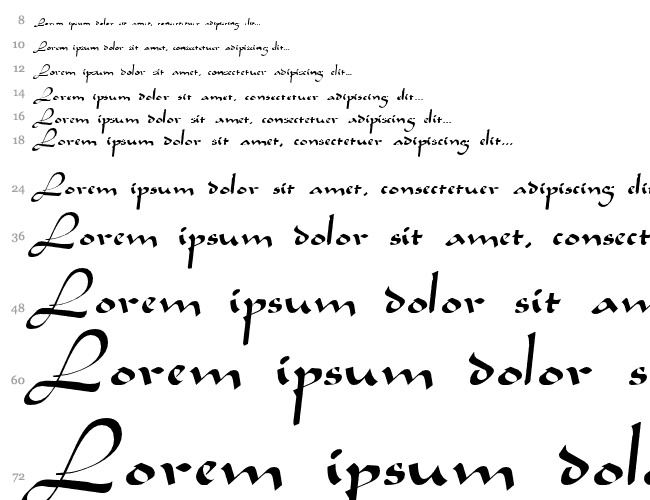 8 Lorem ipsum dolor sit amet, consectetuer adipiscing elit...
10 Lorem ipsum dolor sit amet, consectetuer adipiscing elit...
12 Lorem ipsum dolor sit amet, consectetuer adipiscing elit...
14 Lorem ipsum dolor sit amet, consectetuer adipiscing elit...
16 Lorem ipsum dolor sit amet, consectetuer adipiscing elit...
18 Lorem ipsum dolor sit amet, consectetuer adipiscing elit...
24 Lorem ipsum dolor sit amet, consectetuer adipiscing eli
36 Lorem ipsum dolor sit amet, consect
48 Lorem ipsum dolor sit am
60 Lorem ipsum dolor s
72 Lorem ipsum dol